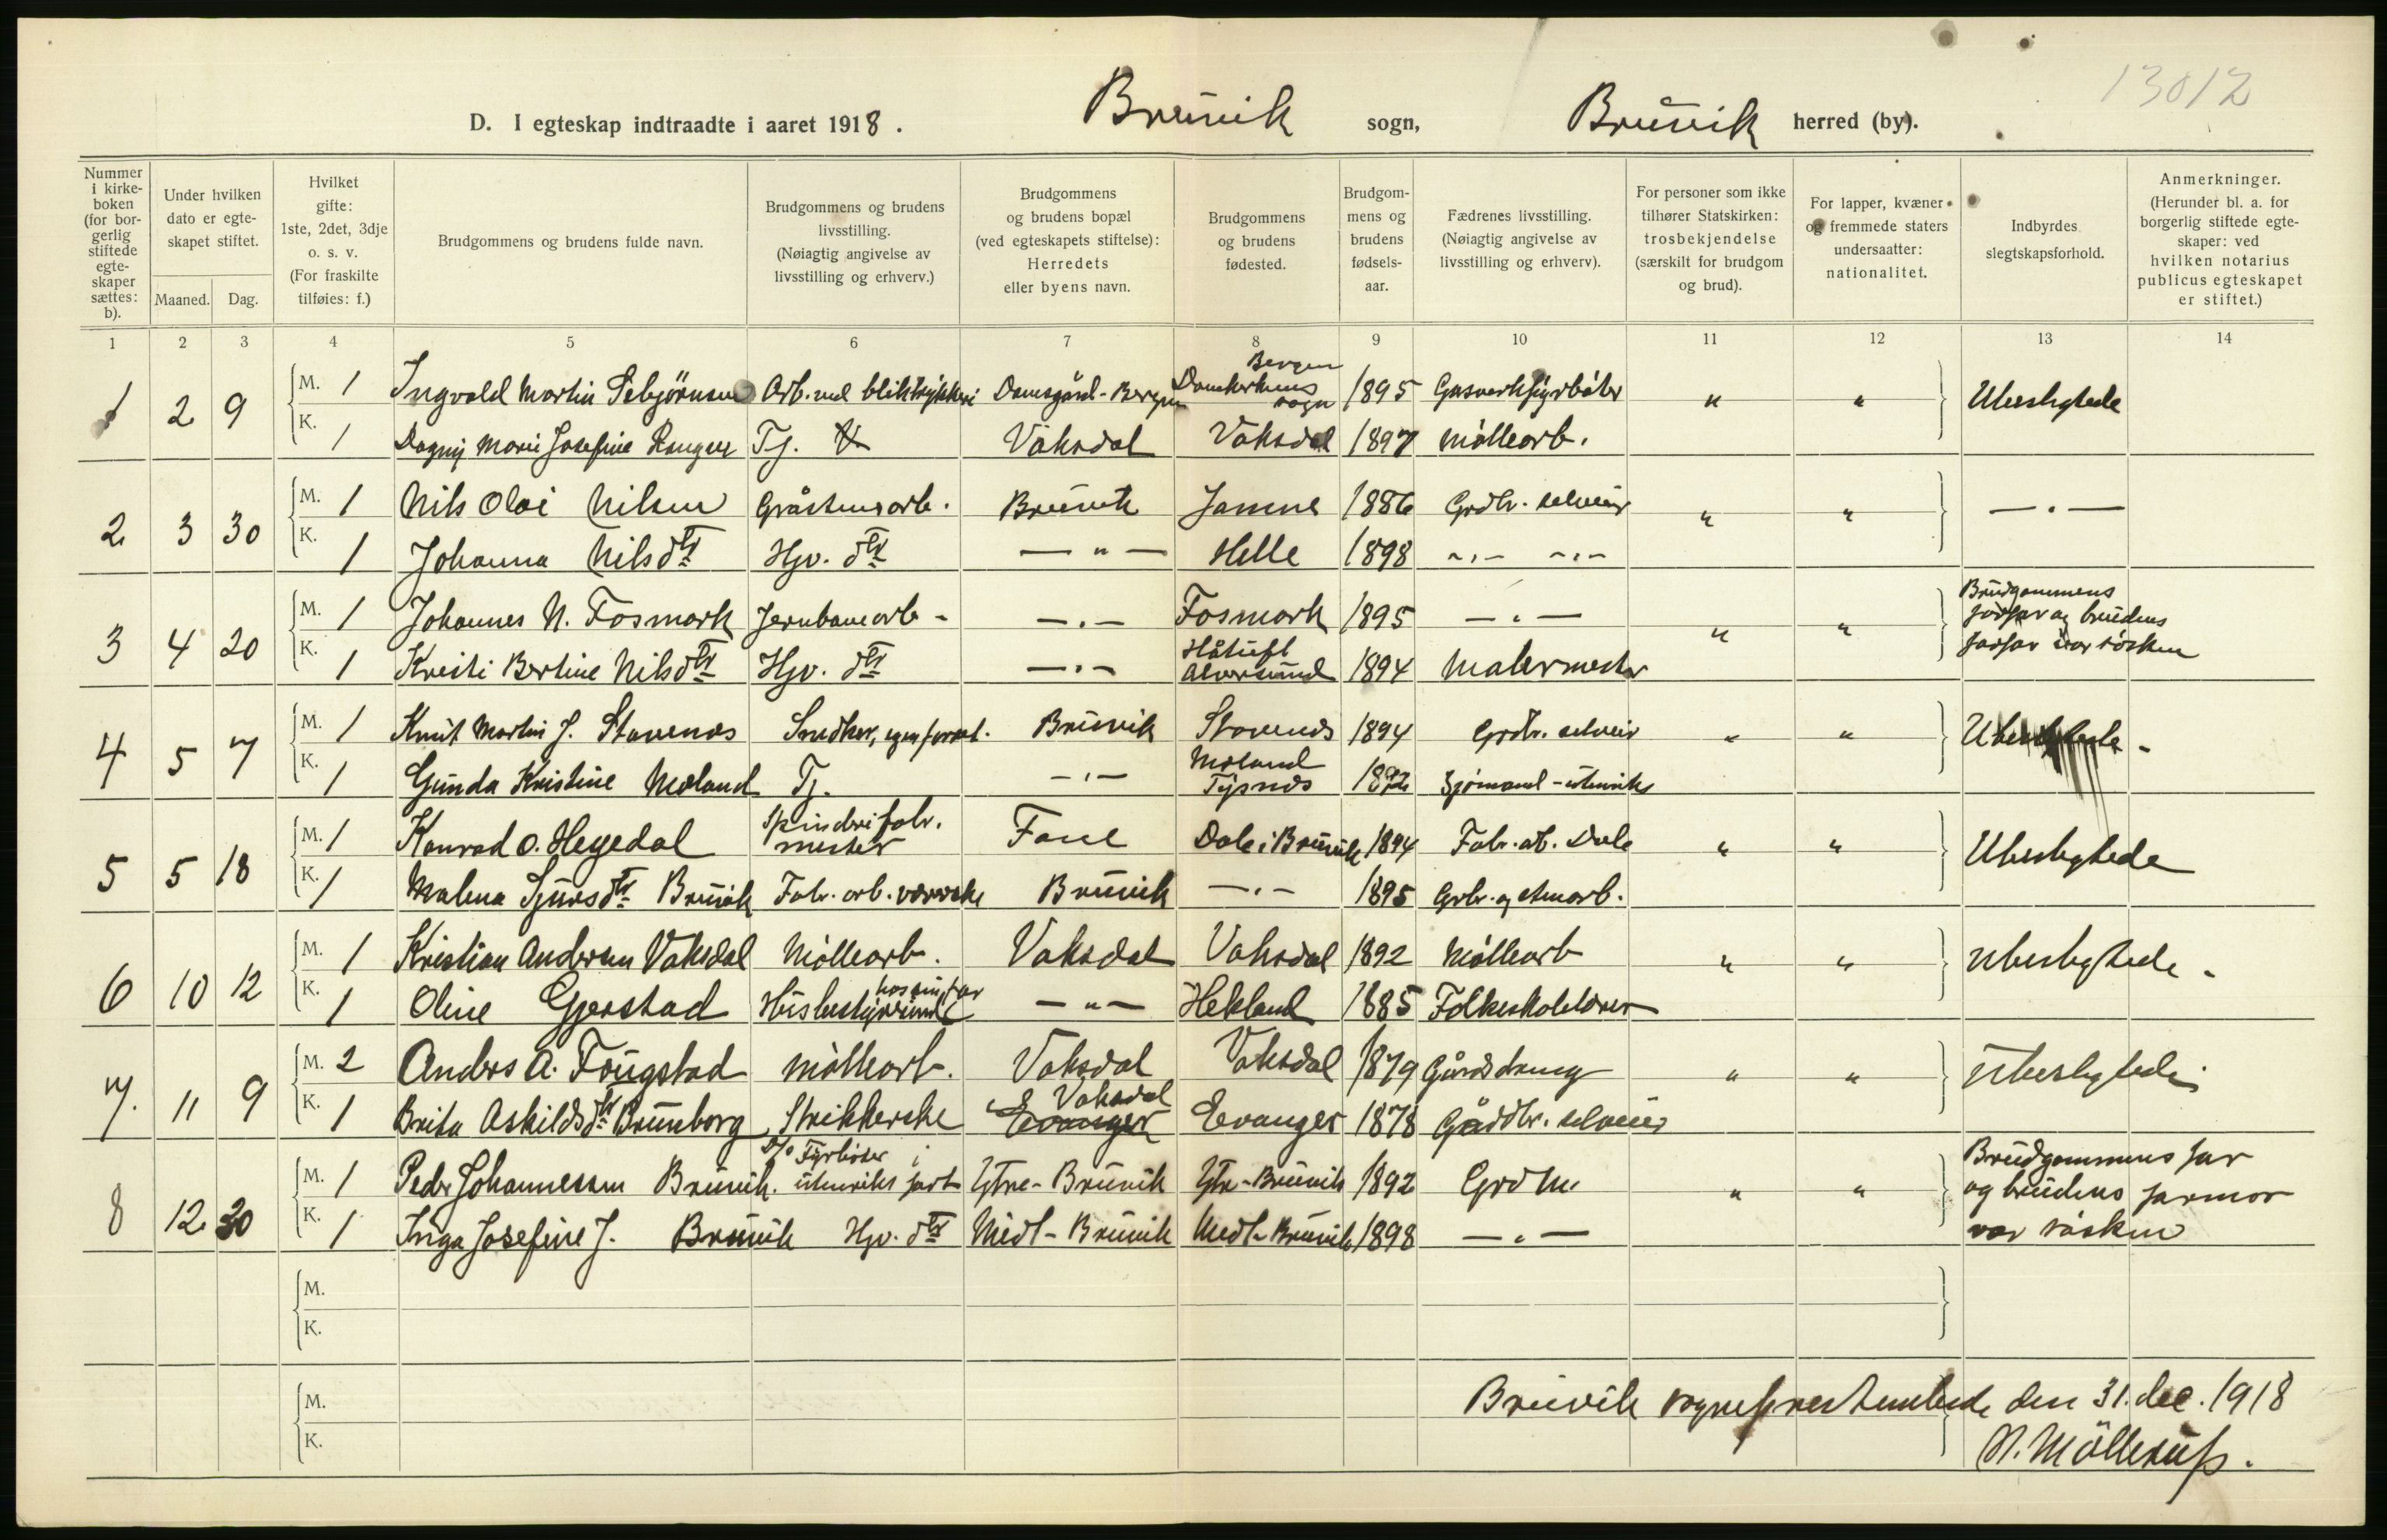 13012
D. I egteskap indtraadte i aaret 1918. Bruvik sogn, Bruvik herred (by).
Nummer i kirkeboken (for borgerlig stiftede egteskaper sættes: b).
Under hvilken dato er egteskapet stiftet.
Maaned. Dag.
Hvilket gifte: 1ste, 2det, 3dje o. s. v. (For fraskilte tilføies: f.)
Brudgommens og brudens fulde navn.
Brudgommens og brudens livsstilling. (Nøiagtig angivelse av livsstilling og erhverv.)
Brudgommens og brudens bopæl (ved egteskapets stiftelse): Herredets eller byens navn.
Brudgommens og brudens fødested.
Brudgommens og brudens fødselsaar.
Fædrenes livsstilling. (Nøiagtig angivelse av livsstilling og erhverv).
For personer som ikke tilhører Statskirken: trosbekjendelse (særskilt for brudgom og brud).
For lapper, kvæner og fremmede staters undersaatter: nationalitet.
Indbyrdes slegtskapsforhold.
Anmerkninger. (Herunder bl. a. for borgerlig stiftede egteskaper: ved hvilken notarius publicus egteskapet er stiftet.)
1 2 3 4 5 6 7 8 9 10 11 12 13 14
1 2 9 M. 1 Ingvald Martin Sebjørnsen Arb. ved bliktrykkeri Damsgård-Bergen Bergen Domkirkens sogn 1895 Gasverkfyrbøter " " Ubeslegtede
K. 1 Dagny Marie Josefine Tj. Vaksdal Vaksdal 1897 Møllearb.
2 3 30 M. 1 Nils Olai Nilsen Gråstensarb. Bruvik Jamne 1886 Grdbr. selveier " " — " —
K. 1 Johanna Nilsdtr Hjv. dtr — " — Helle 1898 — " — — " —
3 4 20 M. 1 Johannes N. Fosmark Jernbanearb. — " — Fosmark 1895 — " — " " Brudgommens farfar og brudens farfar var søsken
K. 1 Kristi Bertine Nilsdtr Hjv. dtr — " — Håtuft Alversund 1894 Malermester
4 5 7 M. 1 Knut Martin J. Stavenes Snedker, egen forret. Bruvik Stavenes 1894 Grdbr. selveier " " Ubeslegtede
K. 1 Gunda Kristine Moland Tj. — " — Moland Tysnes 1892 Sjømand - utenriks
5 5 18 M. 1 Konrad O. Hegedal Spinderifabr. mester Fane Dale i Bruvik 1894 Fabr. arb. Dale " " Ubeslegtede
K. 1 Malena Sjursdtr Bruvik Fabr. arb. væverske Bruvik — " — 1895 Grbr. og stenarb.
6 10 12 M. 1 Kristian Andersen Vaksdal Møllearb. Vaksdal Vaksdal 1892 Møllearb " " Ubeslegtede
K. 1 Oline Gjerstad Husbestyrerinde hos sin far — " — Hekland 1885 Folkeskolelærer
7. 11 9 M. 2 Anders A. Fougstad Møllearb. Vaksdal Vaksdal 1879 Gårddreng " " Ubeslegtede
K. 1 Brita Askildsdtr Brunborg Strikkerske Evanger Vaksdal Evanger 1878 Gårdbr. selveier
8 12 30 M. 1 Peder Johannessen Bruvik. Fyrbøter i utenriks fart Ytre-Bruvik Ytr-Bruvik 1892 Grdbr. " " Brudgommens far og brudens farmor var søsken
K. 1 Inga Josefine J. Bruvik Hjv. dtr Midt-Bruvik Midt-Bruvik 1898 — " —
M.
K.
M.
K.
Bruvik sogneprestembede den 31. dec. 1918
N. Møllerup.